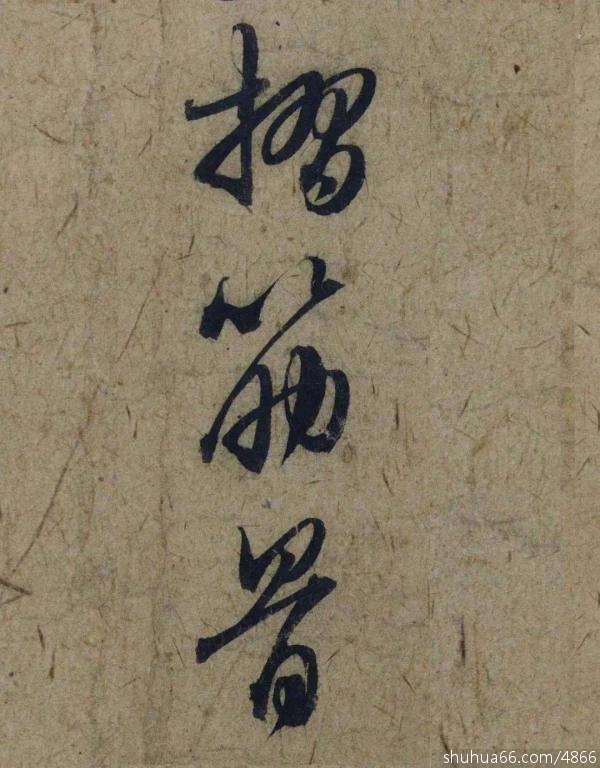 摺筋骨
shuhua66.com/4866